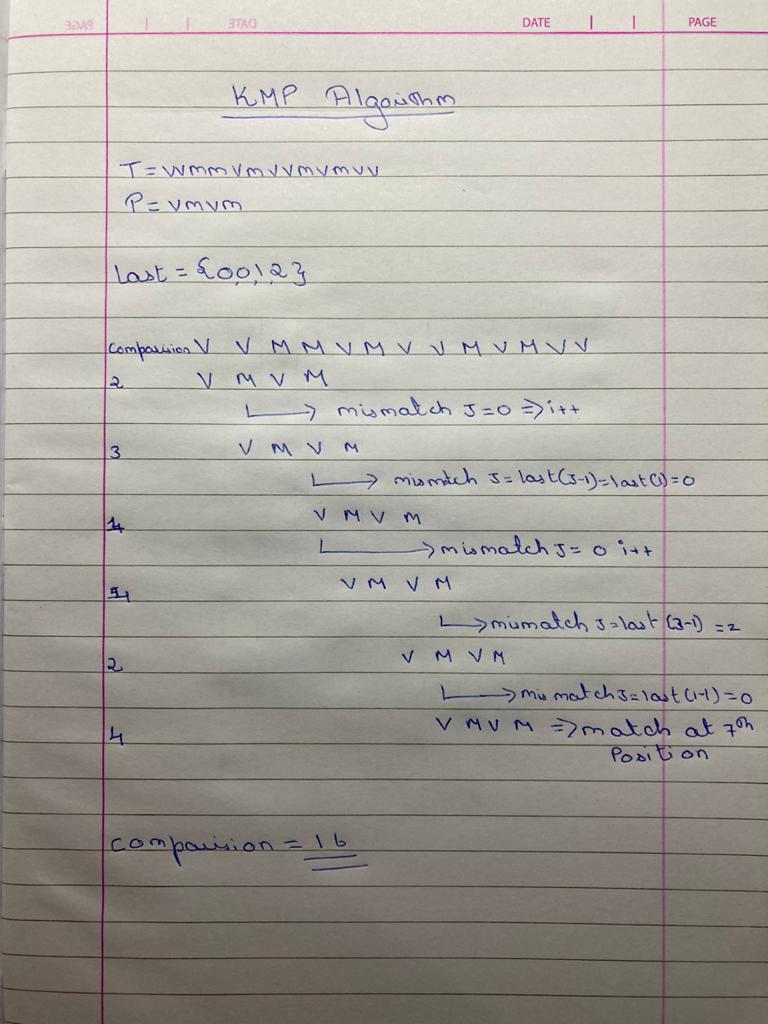 DATE PAGE
KMP Algorithm
T = VVMMVMVVMVMVV
P = VMVM
Last = {0,0,1,2}
Comparision V V M M V M V V M V M V V
2 V M V M
↳ mismatch J=0 => i++
3 V M V M
↳ mismatch J = last(J-1) = last(1) = 0
1 V M V M
↳ mismatch J = 0 i++
4 V M V M
↳ mismatch J = last (3-1) = 2
2 V M V M
↳ mismatch J = last (1-1) = 0
4 V M V M => match at 7th
Position
Comparision = 16